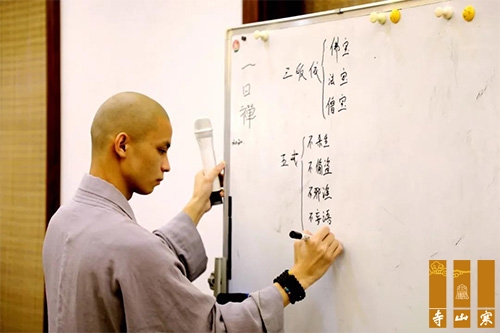 一日禅
三皈依
佛宝
法宝
僧宝
五戒
不杀生
不偷盗
不邪淫
不妄语
寒山寺